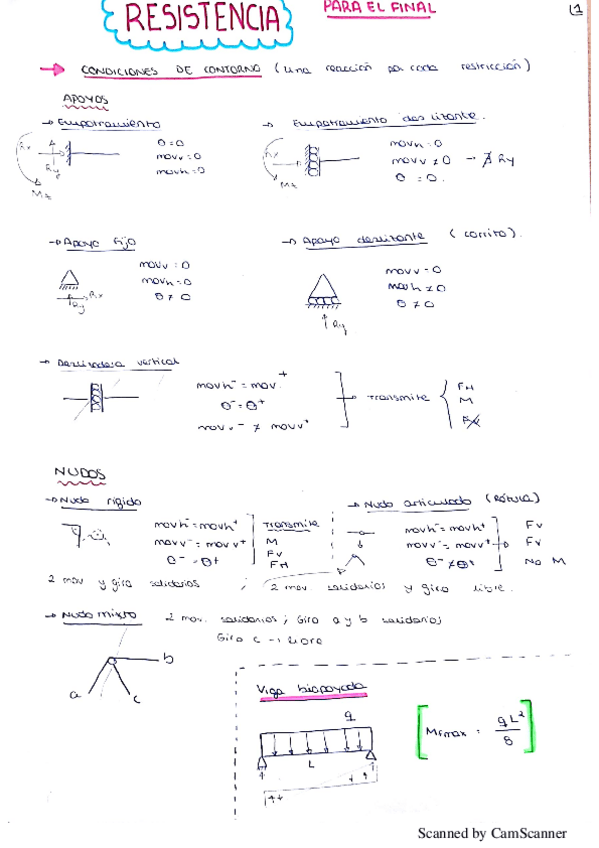 RESISTENCIA
PARA EL FINAL
1
→ CONDICIONES DE CONTORNO (una reacción por cada restricción)
APOYOS
→ Empotramiento
Rx
Ry
Mz
θ = 0
movv = 0
movh = 0
→ Empotramiento deslizante.
Rx
Mz
movh = 0
movv ≠ 0 → ∄ Ry
θ = 0.
→ Apoyo fijo
Rx
Ry
movv = 0
movh = 0
θ ≠ 0
→ Apoyo deslizante (carrito).
Ry
movv = 0
movh ≠ 0
θ ≠ 0
→ Deslizadera vertical
movh⁻ = mov.⁺
θ⁻ = θ⁺
movv⁻ ≠ movv⁺
Transmite
FH
M
NUDOS
→ Nudo rígido
movh⁻ = movh⁺
movv⁻ = movv⁺
θ⁻ = θ⁺
Transmite
M
Fv
FH
2 mov y giro solidarios ;
→ Nudo articulado (Rótula)
movh⁻ = movh⁺
movv⁻ = movv⁺
θ⁻ ≠ θ⁺
Fv
Fv
No M
2 mov solidarios y giro libre.
→ Nudo mixto
2 mov. solidarios ; Giro a y b solidarios
Giro c → libre
a
b
c
Viga biapoyada
q
L
++
Mfmax = qL²/8
Scanned by CamScanner